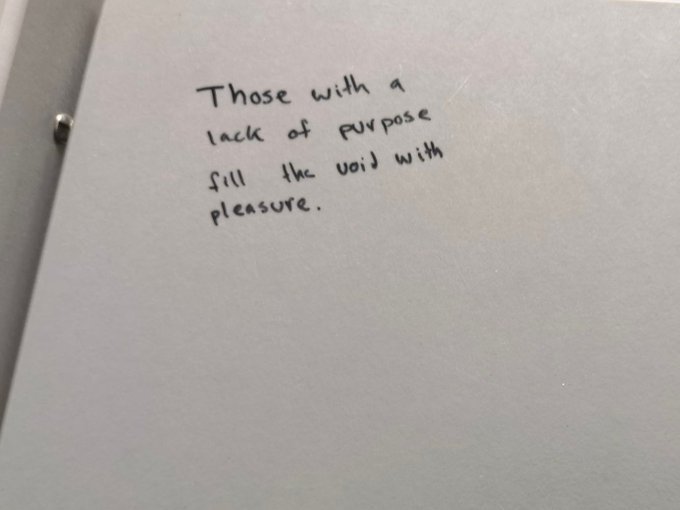 Those with a
lack of purpose
fill the void with
pleasure.